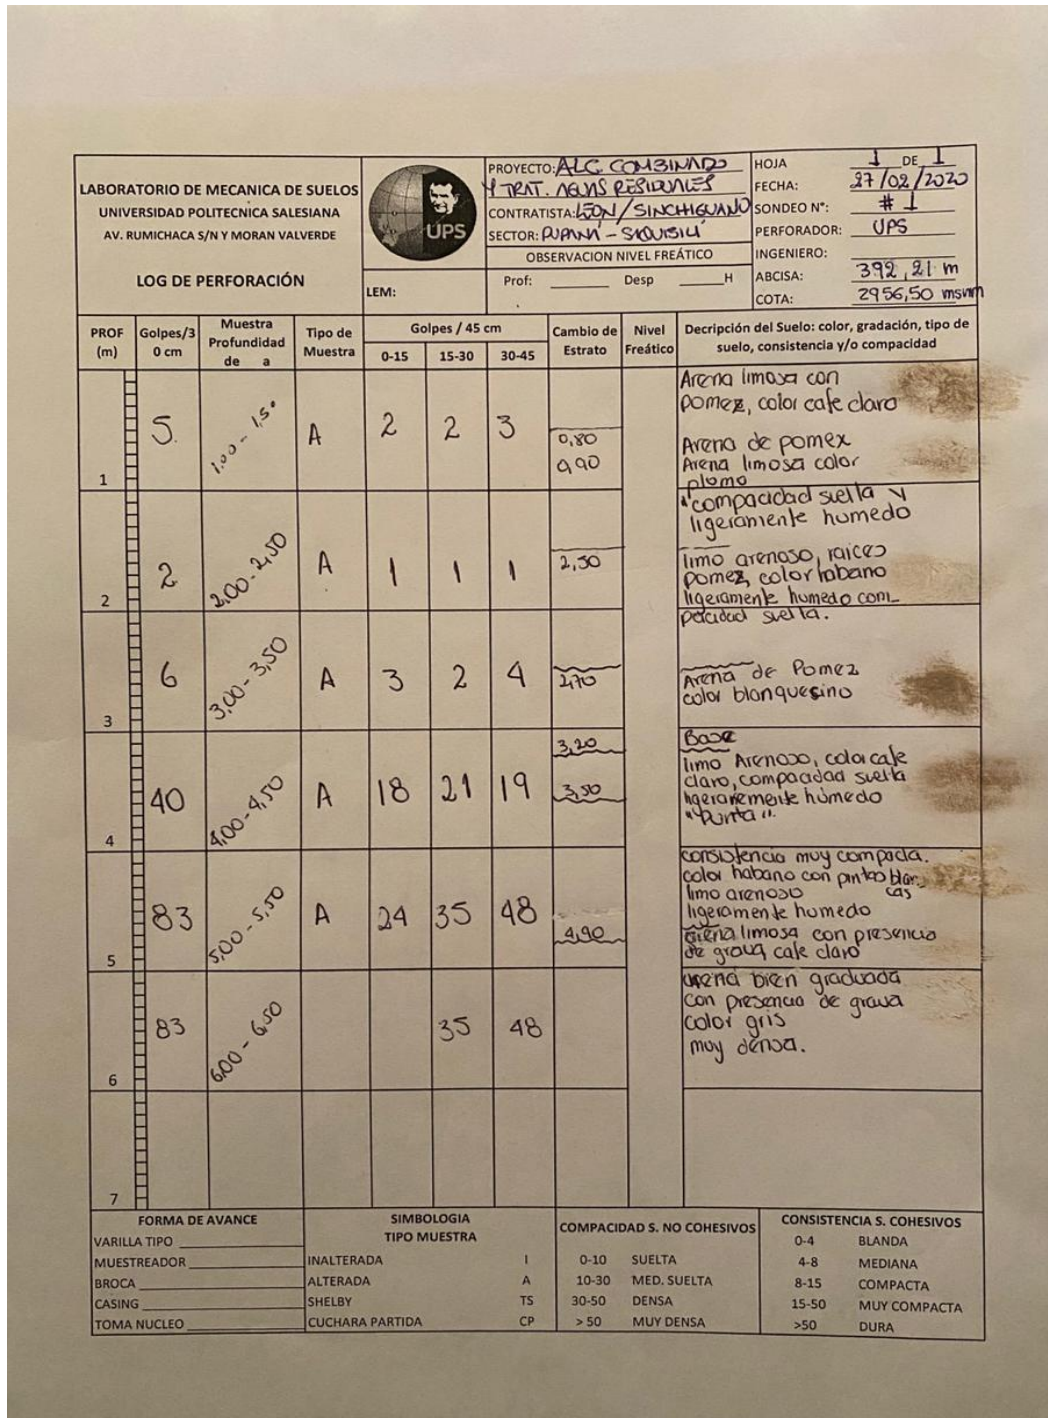 LABORATORIO DE MECANICA DE SUELOS
UNIVERSIDAD POLITECNICA SALESIANA
AV. RUMICHACA S/N Y MORAN VALVERDE
LOG DE PERFORACIÓN
UPS
LEM:
PROYECTO: ALC COMBINADO
Y TRAT. AGUAS RESIDUALES
CONTRATISTA: LEÓN / SINCHIGUANO
SECTOR:
OBSERVACION NIVEL FREÁTICO
Prof: Desp H
HOJA 1 DE 1
FECHA: 27/02/2020
SONDEO N°: # 1
PERFORADOR: UPS
INGENIERO:
ABCISA: 392,21 m
COTA: 2956,50 msnm
PROF (m)
Golpes/3 0 cm
Muestra Profundidad de a
Tipo de Muestra
Golpes / 45 cm
0-15 15-30 30-45
Cambio de Estrato
Nivel Freático
Decripción del Suelo: color, gradación, tipo de suelo, consistencia y/o compacidad
1 5 1,00 - 1,50 A 2 2 3 0,80 0,90
Arena limosa con
pomez, color cafe claro
Arena de pomex
Arena limosa color
plomo
2 2 2,00 - 2,50 A 1 1 1 2,50
"compacidad suelta y
ligeramente humedo
limo arenoso, raices
pomez, color habano
ligeramente humedo com-
3 6 3,00 - 3,50 A 3 2 4 2,70
pacidad suelta.
Arena de Pomez
color blanquesino
4 40 4,00 - 4,50 A 18 21 19 3,20 3,50
Base
limo Arenoso, color cafe
claro, compacidad suelta
ligeramente húmedo
"Punta".
5 83 5,00 - 5,50 A 24 35 48 4,90
consistencia muy compacta.
color habano con pintas blan
limo arenoso cas
ligeramente humedo
arena limosa con presencia
de grava cafe claro
6 83 6,00 - 6,50 35 48
arena bien graduada
con presencia de grava
color gris
muy densa.
7
FORMA DE AVANCE
VARILLA TIPO
MUESTREADOR
BROCA
CASING
TOMA NUCLEO
SIMBOLOGIA
TIPO MUESTRA
INALTERADA I
ALTERADA A
SHELBY TS
CUCHARA PARTIDA CP
COMPACIDAD S. NO COHESIVOS
0-10 SUELTA
10-30 MED. SUELTA
30-50 DENSA
> 50 MUY DENSA
CONSISTENCIA S. COHESIVOS
0-4 BLANDA
4-8 MEDIANA
8-15 COMPACTA
15-50 MUY COMPACTA
>50 DURA